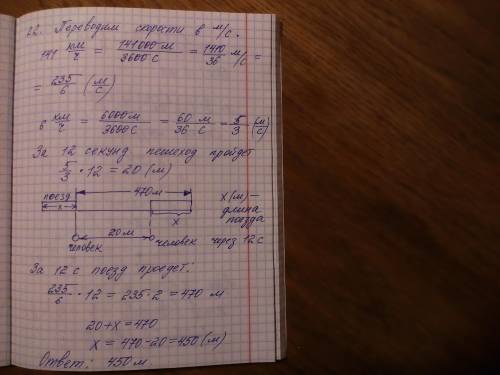 22. Переводим скорости в м/с.
141 км/ч = 141000 м/3600 с = 1410/36 м/с =
= 235/6 (м/с)
6 км/ч = 6000 м/3600 с = 60/36 м/с = 5/3 (м/с)
За 12 секунд пешеход пройдет
5/3 · 12 = 20 (м)
поезд 470 м x (м) –
x длина
x поезда
20 м
человек человек через 12 с
За 12 с поезд проедет:
235/6 · 12 = 235 · 2 = 470 м
20 + x = 470
x = 470 - 20 = 450 (м)
Ответ: 450 м.